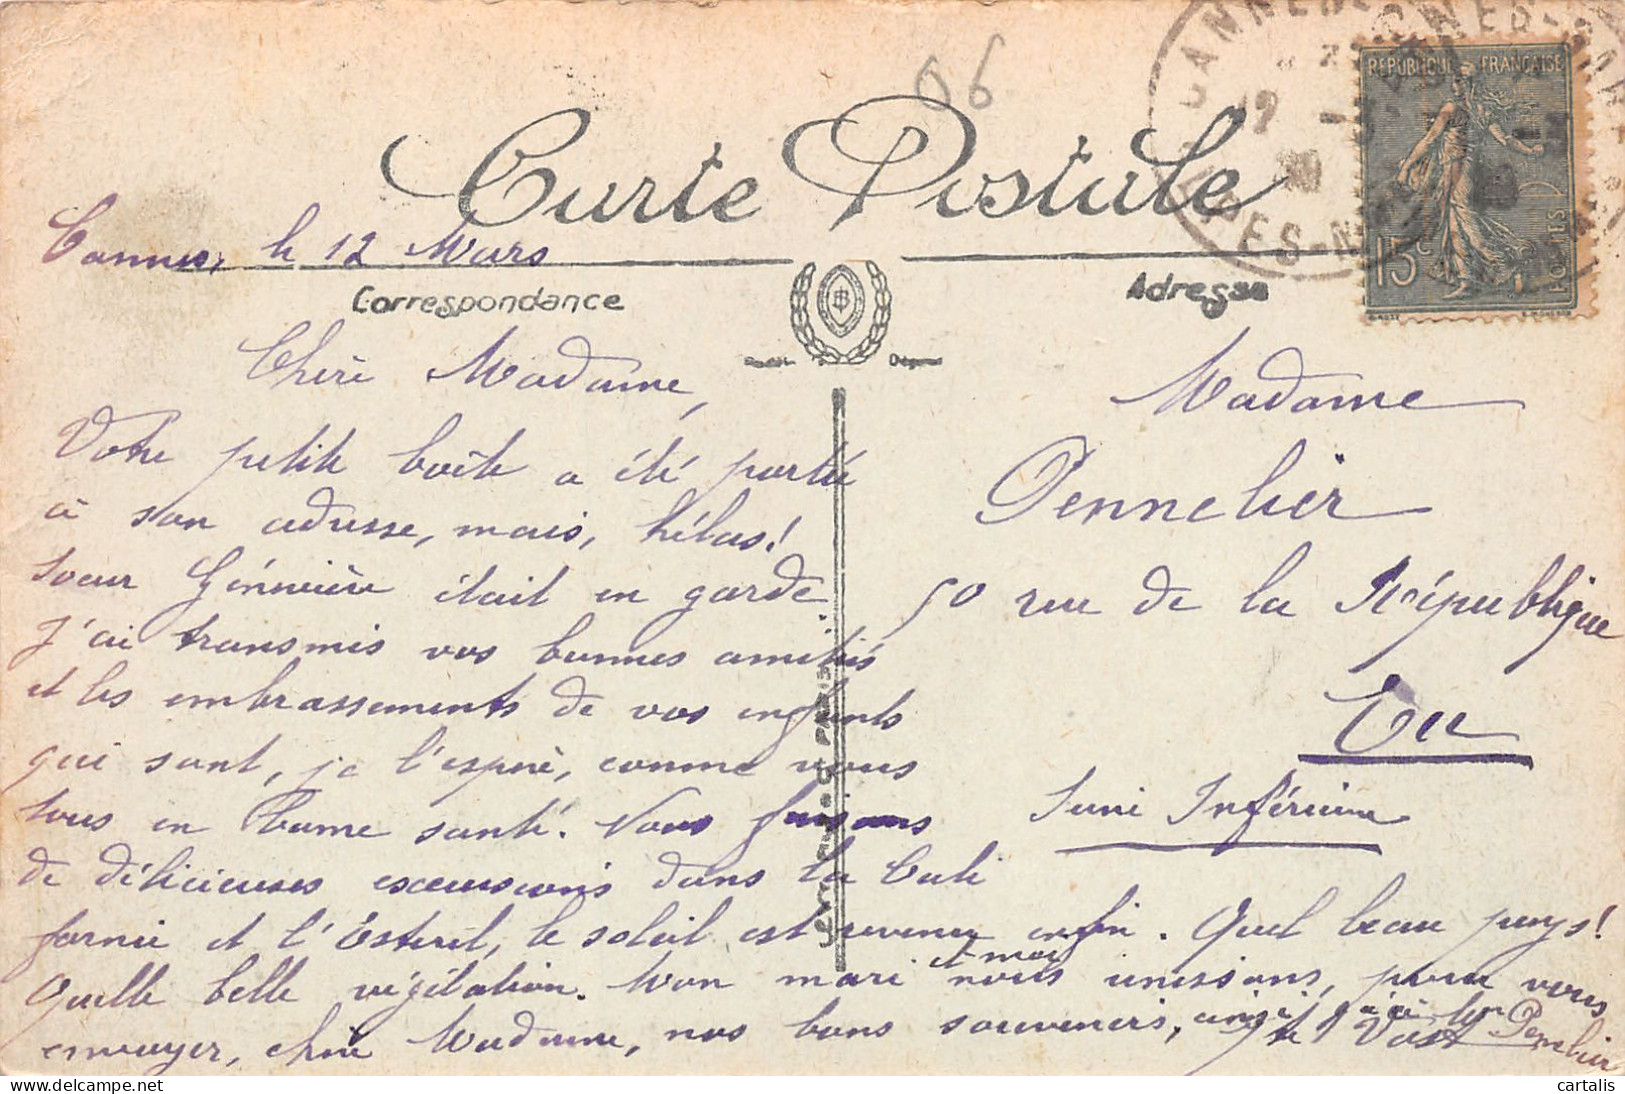 06
CANNES
RÉPUBLIQUE FRANÇAISE
15c
POSTES
Carte Postale
Cannes, le 12 Mars
Correspondance
Adresse
Chère Madame,
Votre petite boîte a été portée
à son adresse, mais, hélas!
Soeur Geneviève était en garde.
J'ai transmis vos bonnes amitiés
et les embrassements de vos enfants
qui sont, je l'espère, comme vous
tous en bonne santé. Nous faisons
de délicieuses excursions dans la Cali
fornie et l'Esterel, le soleil est revenu enfin. Quel beau pays!
Quelle belle végétation. Mon mari et moi nous unissons, pour vous
envoyer, chère Madame, nos bons souvenirs, ainsi qu'à Mr Pennelier
Vast
Madame
Pennelier
50 rue de la République
Eu
Seine Inférieure
cartalis